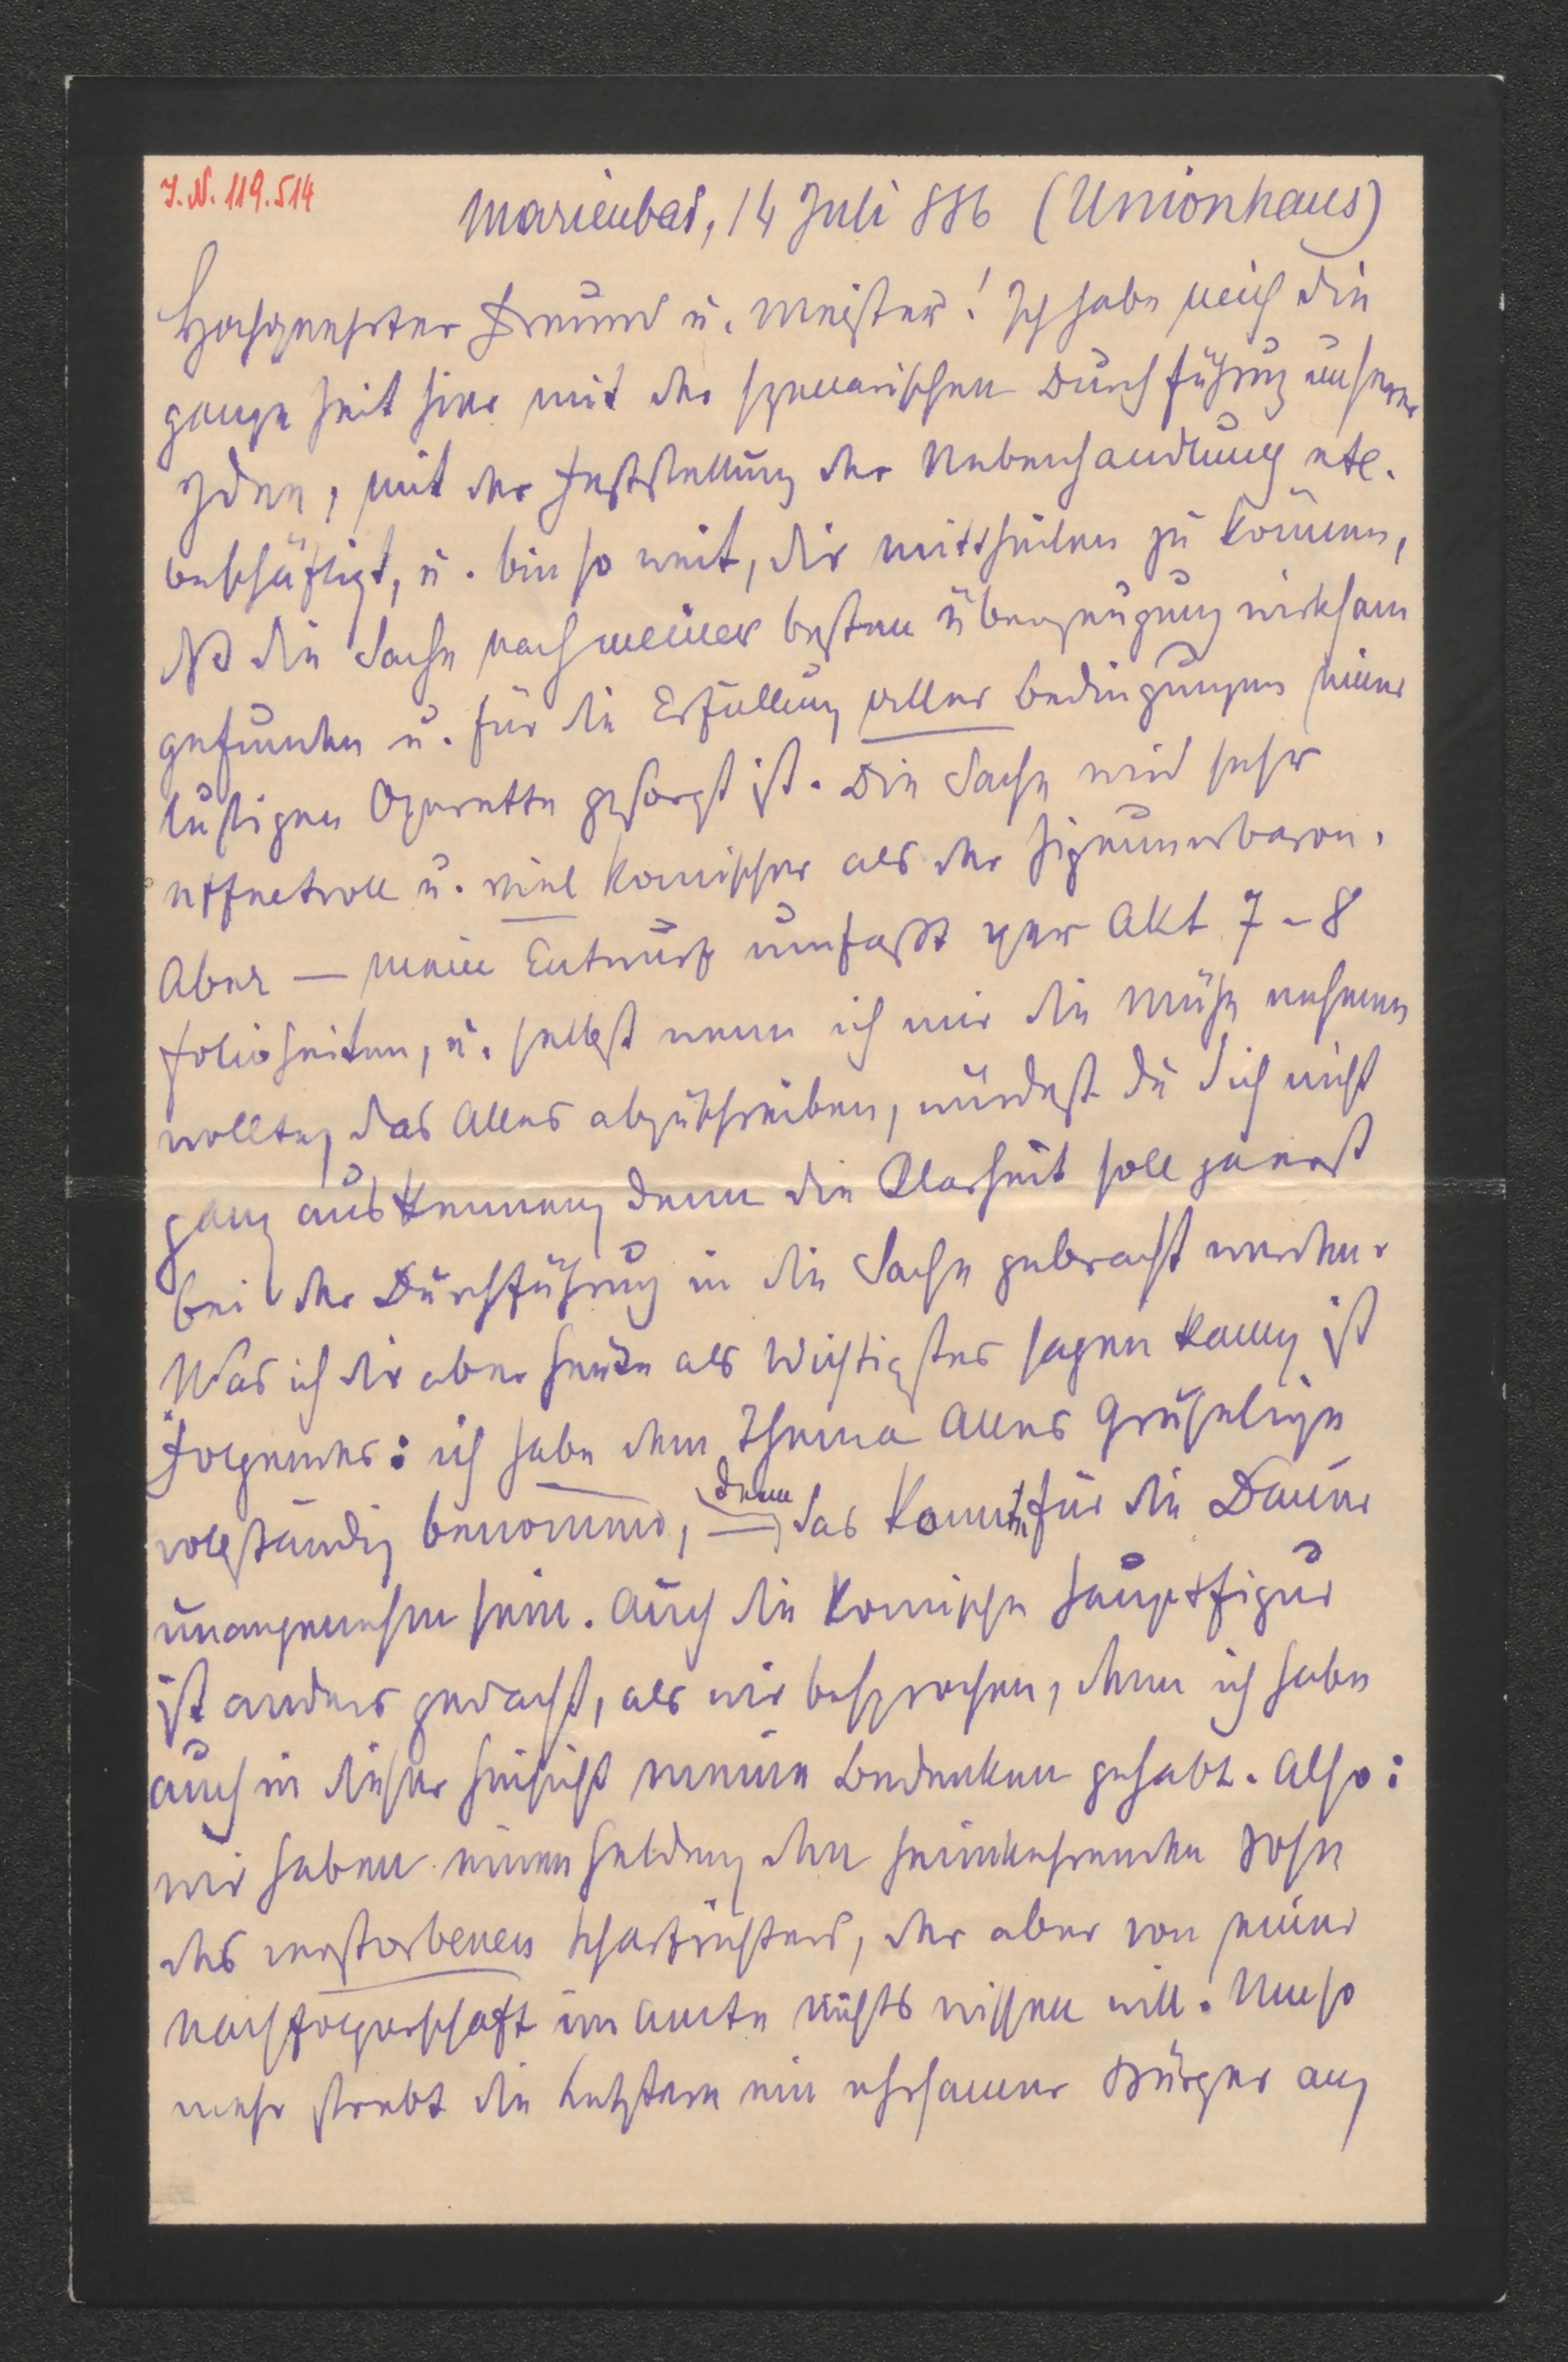 I.N. 119.514
Marienbad, 14 Juli 886 (Unionhaus)
Hochgeehrter Freund u. Meister! Ich habe mich die
ganze Zeit hier mit der szenarischen Durchführung unserer
Idee, mit der Feststellung der Nebenhandlung etc.
beschäftigt, u. bin so weit, dir mittheilen zu können,
daß die Sache nach meiner besten Überzeugung wirksam
gefunden u. für die Erfüllung aller Bedingungen einer
lustigen Operette gesorgt ist. Die Sache wird sehr
effectvoll u. viel komischer als der Zigeunerbaron.
Aber — mein Entwurf umfaßt per Akt 7-8
Folioseiten, u. selbst wenn ich mir die Mühe nehmen
wollte, das Alles abzuschreiben, würdest du dich nicht
ganz auskennen, denn die Klarheit soll ja erst
bei der Durchführung in die Sache gebracht werden.
Was ich dir aber heute als Wichtigstes sagen kann, ist
Folgendes: ich habe dem Thema Alles Gruselige
vollständig benommen, denn das könnte für die Dauer
unangenehm sein. Auch die komische Hauptfigur
ist anders gedacht, als wir besprochen, denn ich habe
auch in dieser Hinsicht meine Bedenken gehabt. Also:
wir haben einen Helden, den heimkehrenden Sohn
des verstorbenen Scharfrichters, der aber von seiner
Nachfolgerschaft im Amte nichts wissen will. Umso
mehr strebt die Letztere ein ehrsamer Bürger an,